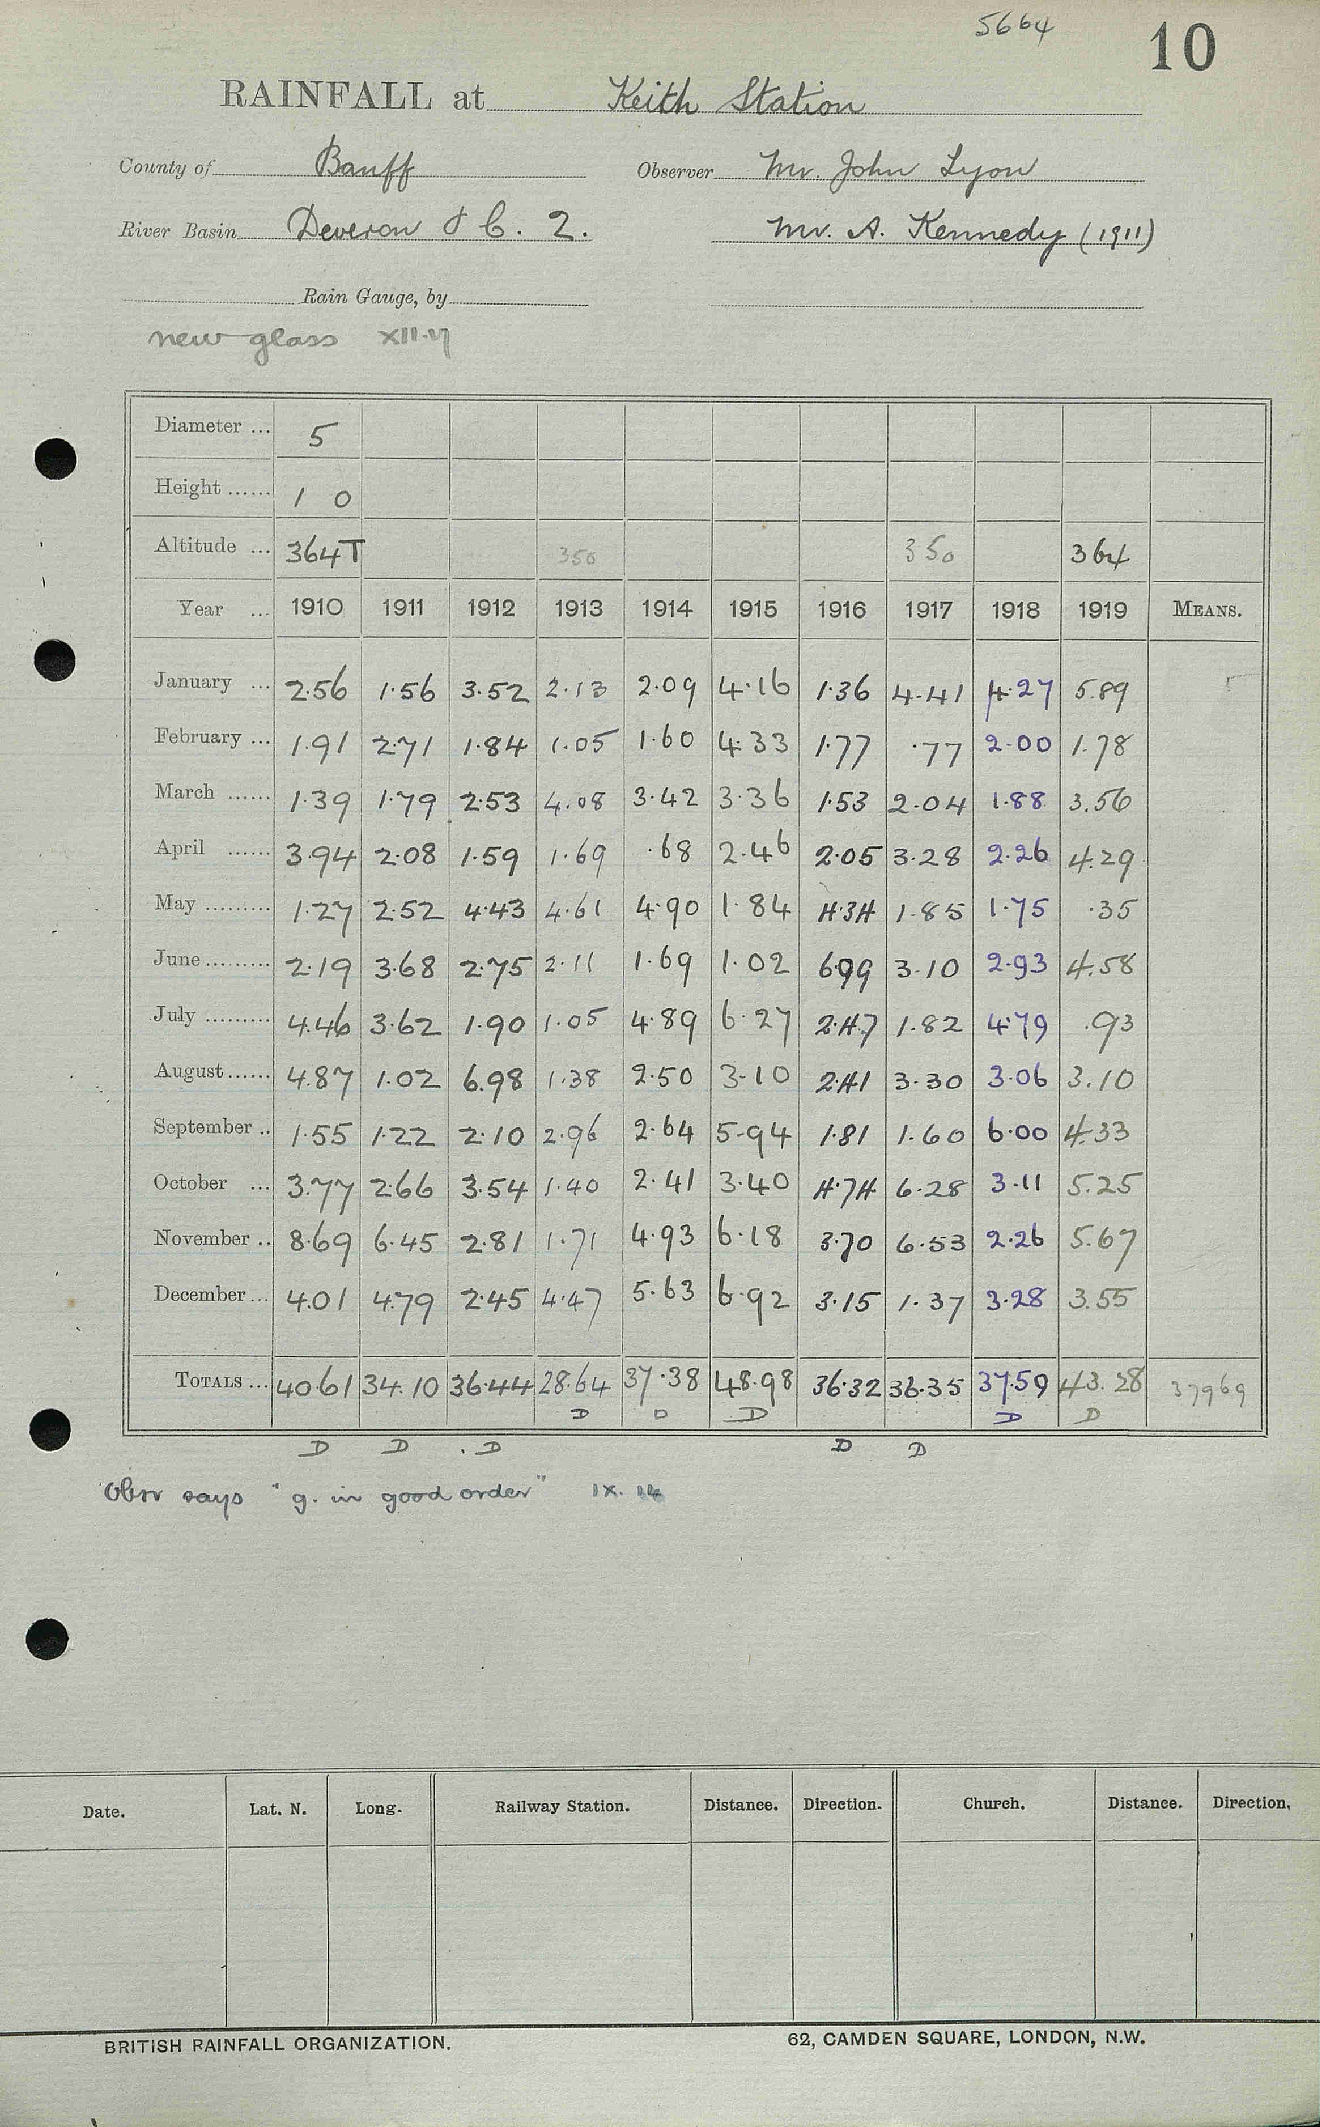 5664
10
RAINFALL at Keith Station
County of Banff Observer Mr. John Lyon
River Basin Deveron & C. 2. Mr. A. Kennedy (1911)
Rain Gauge, by
new glass XII.17
Diameter ... 5
Height ...... 1 0
Altitude ... 364T 350 350 364
Year ... 1910 1911 1912 1913 1914 1915 1916 1917 1918 1919 MEANS.
January ... 2.56 1.56 3.52 2.13 2.09 4.16 1.36 4.41 4.27 5.89
February ... 1.91 2.71 1.84 1.05 1.60 4.33 1.77 .77 2.00 1.78
March ...... 1.39 1.79 2.53 4.08 3.42 3.36 1.53 2.04 1.88 3.56
April ...... 3.94 2.08 1.59 1.69 .68 2.46 2.05 3.28 2.26 4.29
May ......... 1.27 2.52 4.43 4.61 4.90 1.84 4.34 1.85 1.75 .35
June ......... 2.19 3.68 2.75 2.11 1.69 1.02 6.99 3.10 2.93 4.58
July ......... 4.46 3.62 1.90 1.05 4.89 6.27 2.47 1.82 4.79 .93
August ...... 4.87 1.02 6.98 1.38 2.50 3.10 2.41 3.30 3.06 3.10
September .. 1.55 1.22 2.10 2.96 2.64 5.94 1.81 1.60 6.00 4.33
October ... 3.77 2.66 3.54 1.40 2.41 3.40 4.74 6.28 3.11 5.25
November .. 8.69 6.45 2.81 1.71 4.93 6.18 3.70 6.53 2.26 5.67
December ... 4.01 4.79 2.45 4.47 5.63 6.92 3.15 1.37 3.28 3.55
TOTALS ... 40.61 34.10 36.44 28.64 37.38 48.98 36.32 36.35 37.59 43.28 37969
D D D D D
D D . D D D
Obsr says "g. in good order" IX. 14
Date. Lat. N. Long. Railway Station. Distance. Direction. Church. Distance. Direction.
BRITISH RAINFALL ORGANIZATION. 62, CAMDEN SQUARE, LONDON, N.W.